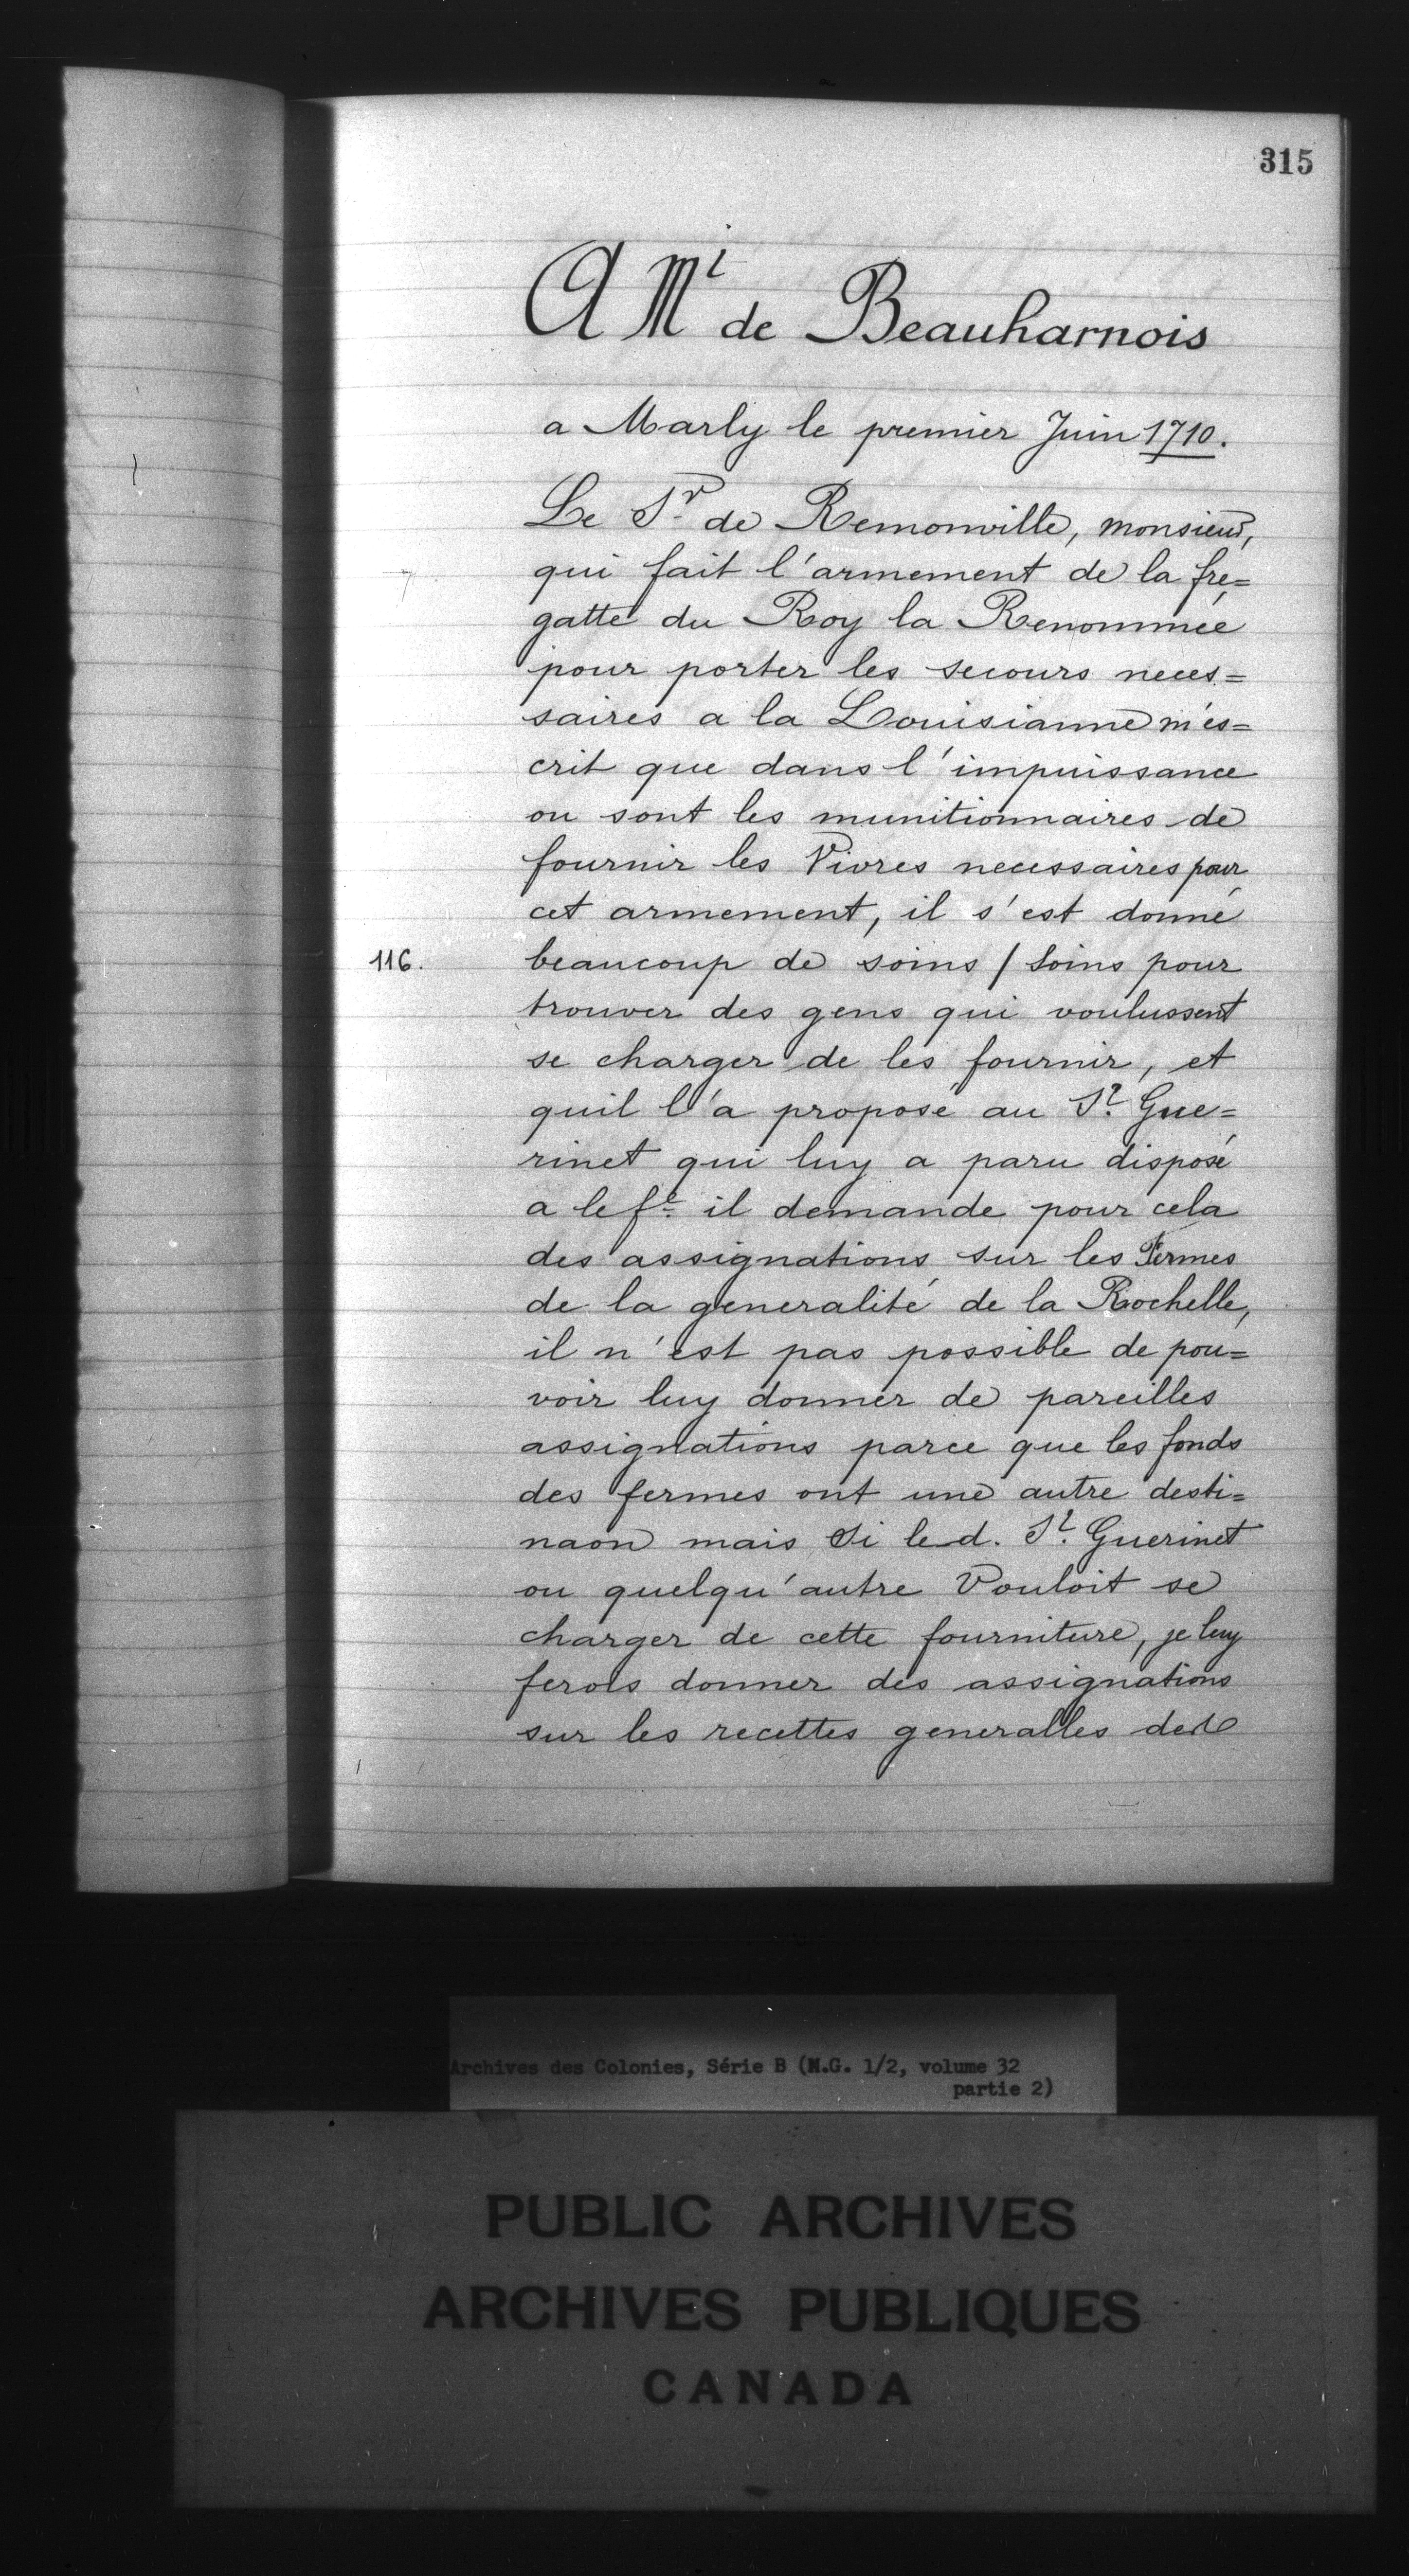 315
A Mr de Beauharnois
a Marly le premier Juin 1710.
Le Sr de Remonville, monsieur,
qui fait l'armement de la fre=
gatte du Roy la Renommée
pour porter les secours neces=
saires a la Louisianne m'es=
crit que dans l'impuissance
ou sont les munitionnaires de
fournir les Vivres necessaires pour
cet armement, il s'est donné
116. beaucoup de soins / Soins pour
trouver des gens qui voulussent
se charger de les fournir, et
quil l'a proposé au Sr. Gue=
rinet qui luy a paru disposé
a le fe. il demande pour cela
des assignations sur les Fermes
de la generalité de la Rochelle,
il n'est pas possible de pou=
voir luy donner de pareilles
assignations parce que les fonds
des fermes ont une autre desti=
naon mais Si led. Sr. Guerinet
ou quelqu'autre Vouloit se
charger de cette fourniture, je luy
ferois donner des assignations
sur les recettes generalles de
Archives des Colonies, Série B (M.G. 1/2, volume 32
partie 2)
PUBLIC ARCHIVES
ARCHIVES PUBLIQUES
CANADA